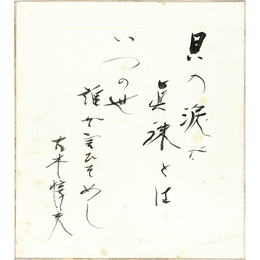 貝の涙が
真珠とは
いつの世
誰が言ひそめし
古木信夫